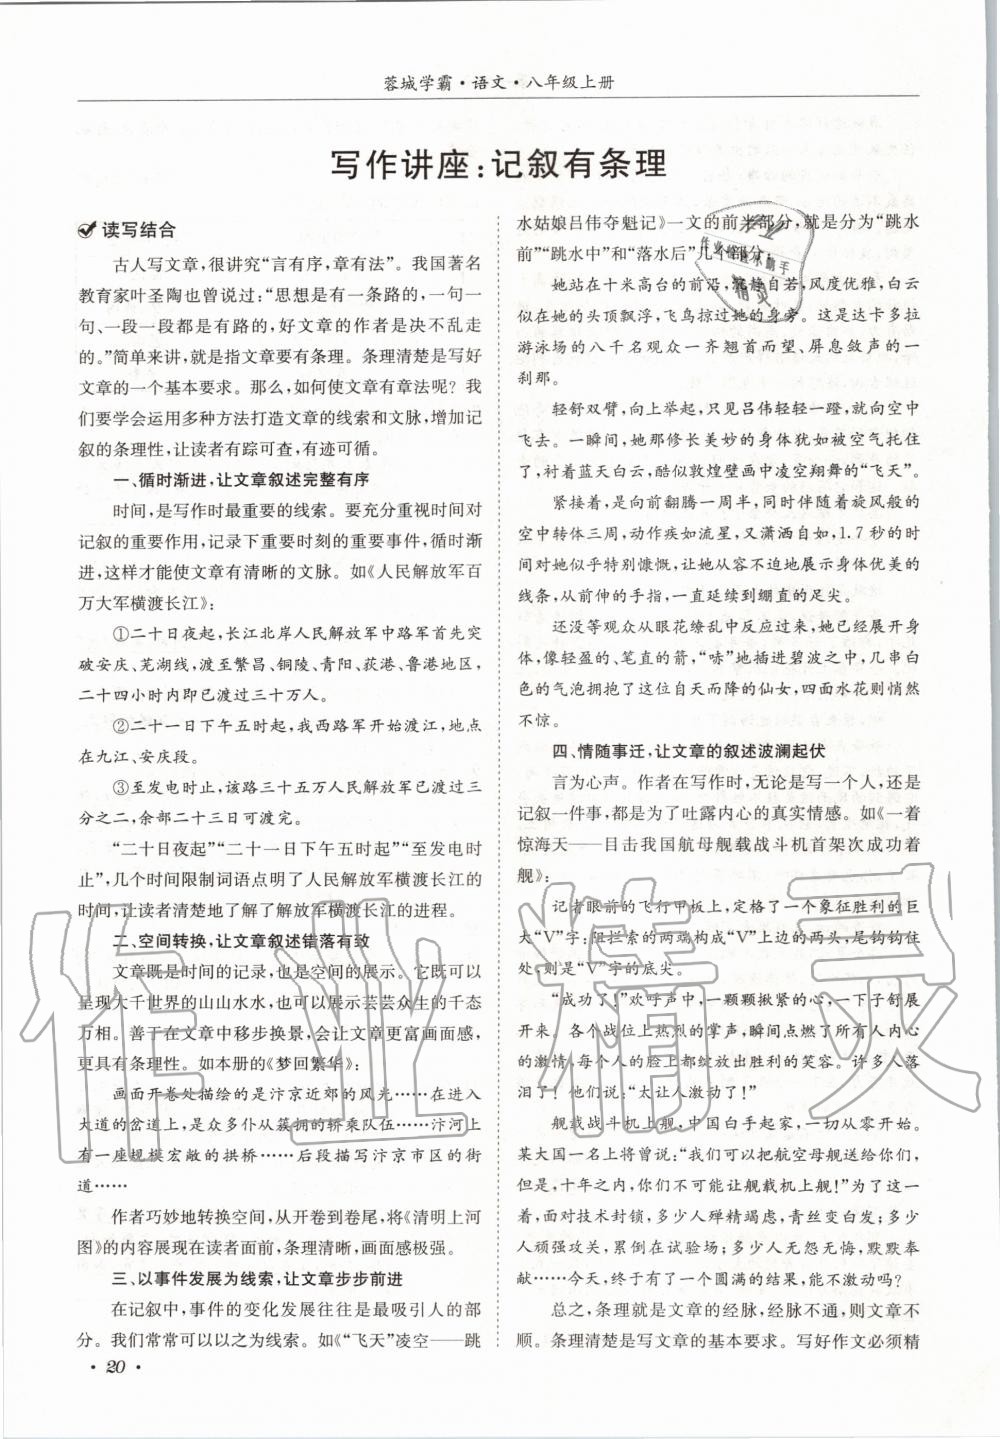 蓉城学霸·语文·八年级上册
写作讲座:记叙有条理
读写结合
古人写文章,很讲究“言有序,章有法”。我国著名
教育家叶圣陶也曾说过:“思想是有一条路的,一句一
句、一段一段都是有路的,好文章的作者是决不乱走
的。”简单来讲,就是指文章要有条理。条理清楚是写好
文章的一个基本要求。那么,如何使文章有章法呢?我
们要学会运用多种方法打造文章的线索和文脉,增加记
叙的条理性,让读者有踪可查,有迹可循。
一、循时渐进,让文章叙述完整有序
时间,是写作时最重要的线索。要充分重视时间对
记叙的重要作用,记录下重要时刻的重要事件,循时渐
进,这样才能使文章有清晰的文脉。如《人民解放军百
万大军横渡长江》:
①二十日夜起,长江北岸人民解放军中路军首先突
破安庆、芜湖线,渡至繁昌、铜陵、青阳、荻港、鲁港地区,
二十四小时内即已渡过三十万人。
②二十一日下午五时起,我西路军开始渡江,地点
在九江、安庆段。
③至发电时止,该路三十五万人民解放军已渡过三
分之二,余部二十三日可渡完。
“二十日夜起”“二十一日下午五时起”“至发电时
止”,几个时间限制词语点明了人民解放军横渡长江的
时间,让读者清楚地了解了解放军横渡长江的进程。
二、空间转换,让文章叙述错落有致
文章既是时间的记录,也是空间的展示。它既可以
呈现大千世界的山山水水,也可以展示芸芸众生的千态
万相。善于在文章中移步换景,会让文章更富画面感,
更具有条理性。如本册的《梦回繁华》:
画面开卷处描绘的是汴京近郊的风光……在进入
大道的岔道上,是众多仆从簇拥的轿乘队伍……汴河上
有一座规模宏敞的拱桥……后段描写汴京市区的街
道……
作者巧妙地转换空间,从开卷到卷尾,将《清明上河
图》的内容展现在读者面前,条理清晰,画面感极强。
三、以事件发展为线索,让文章步步前进
在记叙中,事件的变化发展往往是最吸引人的部
分。我们常常可以以之为线索。如《“飞天”凌空——跳
水姑娘吕伟夺魁记》一文的前半部分,就是分为“跳水
前”“跳水中”和“落水后”几个部分:
她站在十米高台的前沿,沉静自若,风度优雅,白云
似在她的头顶飘浮,飞鸟掠过她的身旁。这是达卡多拉
游泳场的八千名观众一齐翘首而望、屏息敛声的一
刹那。
轻舒双臂,向上举起,只见吕伟轻轻一蹬,就向空中
飞去。一瞬间,她那修长美妙的身体犹如被空气托住
了,衬着蓝天白云,酷似敦煌壁画中凌空翔舞的“飞天”。
紧接着,是向前翻腾一周半,同时伴随着旋风般的
空中转体三周,动作疾如流星,又潇洒自如,1.7秒的时
间对她似乎特别慷慨,让她从容不迫地展示身体优美的
线条,从前伸的手指,一直延续到绷直的足尖。
还没等观众从眼花缭乱中反应过来,她已经展开身
体,像轻盈的、笔直的箭,“哧”地插进碧波之中,几串白
色的气泡拥抱了这位自天而降的仙女,四面水花则悄然
不惊。
四、情随事迁,让文章的叙述波澜起伏
言为心声。作者在写作时,无论是写一个人,还是
记叙一件事,都是为了吐露内心的真实情感。如《一着
惊海天——目击我国航母舰载战斗机首架次成功着
舰》:
记者眼前的飞行甲板上,定格了一个象征胜利的巨
大“V”字:阻拦索的两端构成“V”上边的两头,尾钩钩住
处,则是“V”字的底尖。
“成功了!”欢呼声中,一颗颗揪紧的心,一下子舒展
开来。各个战位上热烈的掌声,瞬间点燃了所有人内心
的激情,每个人的脸上都绽放出胜利的笑容。许多人落
泪了!他们说:“太让人激动了!”
舰载战斗机上舰,中国白手起家,一切从零开始。
某大国一名上将曾说:“我们可以把航空母舰送给你们,
但是,十年之内,你们不可能让舰载机上舰!”为了这一
天,面对技术封锁,多少人殚精竭虑,青丝变白发;多少
人顽强攻关,累倒在试验场;多少人无怨无悔,默默奉
献……今天,终于有了一个圆满的结果,能不激动吗?
总之,条理就是文章的经脉,经脉不通,则文章不
顺。条理清楚是写文章的基本要求。写好作文必须精
·20·
作业精灵
作业
作业检查小助手
精灵